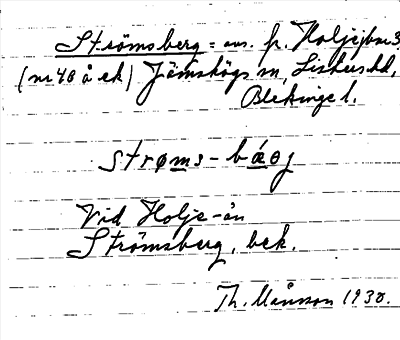 Strömsberg = avs. fr. Holjeybro 3
(nr 48 å ek) Jämshögs sn, Listers hd,
Blekinge l.
strøms-bæoj
Vid Holje-ån
Strömsberg, bek.
Th. Månsson 1930.